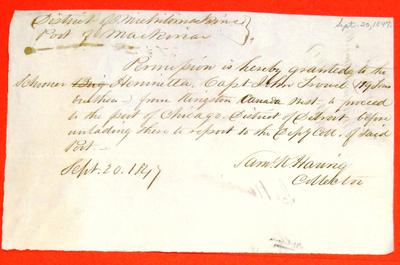 Sept. 20, 1847.
District of Michilimackinac
Port of Mackinac
Permission is hereby granted to the
Schooner Brig Henrietta, Capt John
burthen – from Kingston Canada West, to proceed
to the port of Chicago, District of Detroit, before
unlading there to report to the Depy Coll. of said
Port –
Sept. 20. 1847
Sam. K. Haring
Collector